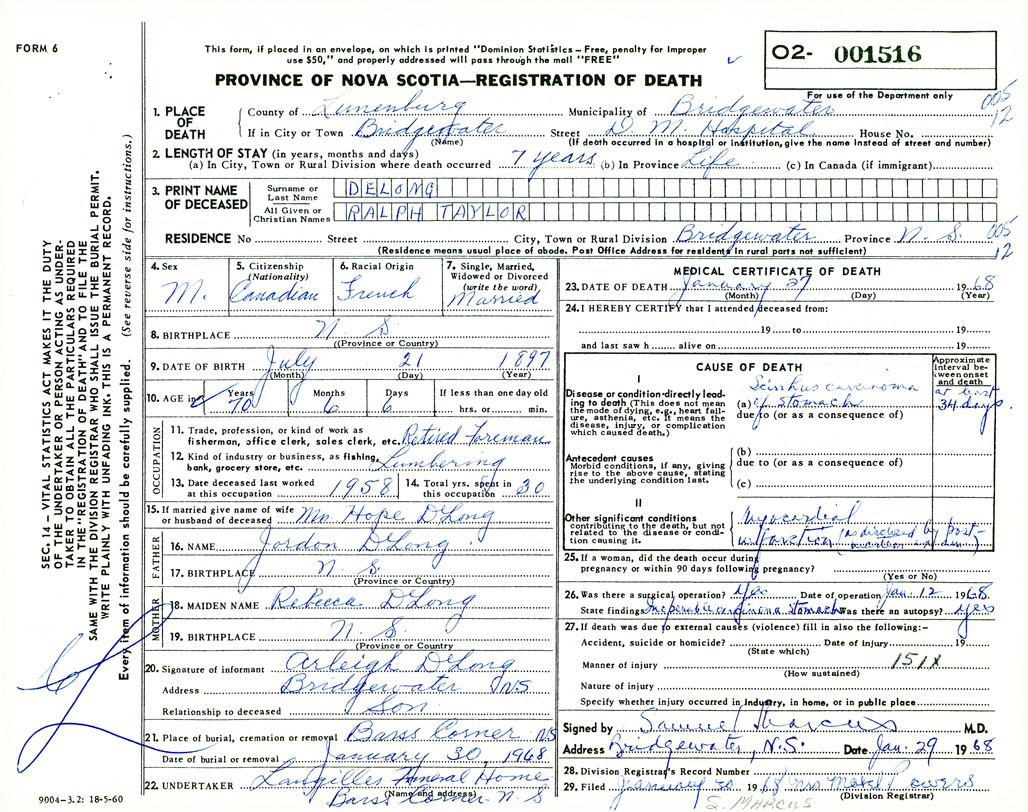 FORM 6
This form, if placed in an envelope, on which is printed "Dominion Statistics – Free, penalty for improper
use $50," and properly addressed will pass through the mail "FREE"
O2- 001516
For use of the Department only
PROVINCE OF NOVA SCOTIA—REGISTRATION OF DEATH
005
12
1. PLACE OF DEATH
County of Lunenburg Municipality of Bridgewater
If in City or Town Bridgewater Street D. M. Hospital House No.
(Name) (If death occurred in a hospital or institution, give the name instead of street and number)
2. LENGTH OF STAY (in years, months and days)
(a) In City, Town or Rural Division where death occurred 7 years (b) In Province Life (c) In Canada (if immigrant)
3. PRINT NAME OF DECEASED
Surname or Last Name DELONG
All Given or Christian Names RALPH TAYLOR
RESIDENCE No Street City, Town or Rural Division Bridgewater Province N. S. 005
12
(Residence means usual place of abode. Post Office Address for residents in rural parts not sufficient)
4. Sex M.
5. Citizenship (Nationality) Canadian
6. Racial Origin French
7. Single, Married, Widowed or Divorced (write the word) Married
8. BIRTHPLACE N. S.
(Province or Country)
9. DATE OF BIRTH July 21 1897
(Month) (Day) (Year)
10. AGE in Years 70 Months 6 Days 6 If less than one day old
hrs. or min.
OCCUPATION
11. Trade, profession, or kind of work as
fisherman, office clerk, sales clerk, etc. Retired Foreman
12. Kind of industry or business, as fishing,
bank, grocery store, etc. Lumbering
13. Date deceased last worked
at this occupation 1958
14. Total yrs. spent in
this occupation 30
15. If married give name of wife
or husband of deceased Mrs Hope D'Long
FATHER
16. NAME Jordon D'Long
17. BIRTHPLACE N. S.
(Province or Country)
MOTHER
18. MAIDEN NAME Rebecca D'Long
19. BIRTHPLACE N. S.
(Province or Country)
20. Signature of informant Arleigh D'Long
Address Bridgewater NS
Relationship to deceased Son
21. Place of burial, cremation or removal Barss Corner NS
Date of burial or removal January 30, 1968
22. UNDERTAKER Langilles Funeral Home
(Name and address) Barss Corner N. S
MEDICAL CERTIFICATE OF DEATH
23. DATE OF DEATH January 27 1968
(Month) (Day) (Year)
24. I HEREBY CERTIFY that I attended deceased from:
19 to 19
and last saw h alive on 19
CAUSE OF DEATH
Approximate interval between onset and death
I
Disease or condition directly leading to death (This does not mean the mode of dying, e.g., heart failure, asthenia, etc. It means the disease, injury, or complication which caused death.)
(a) Scirrhus carcinoma of stomach at least 34 days.
due to (or as a consequence of)
Antecedent causes
Morbid conditions, if any, giving rise to the above cause, stating the underlying condition last.
(b)
due to (or as a consequence of)
(c)
II
Other significant conditions contributing to the death, but not related to the disease or condition causing it.
Myocardial
infarction (as disclosed by post-
25. If a woman, did the death occur during
pregnancy or within 90 days following pregnancy?
(Yes or No)
26. Was there a surgical operation? Yes Date of operation Jan. 12 1968
State findings Inoperable carcinoma stomach Was there an autopsy? Yes
27. If death was due to external causes (violence) fill in also the following:–
Accident, suicide or homicide? Date of injury 19
(State which)
Manner of injury 151X
(How sustained)
Nature of injury
Specify whether injury occurred in industry, in home, or in public place
Signed by Samuel Marcus M.D.
Address Bridgewater, N.S. Date Jan. 29 1968
28. Division Registrar's Record Number
29. Filed January 30 1968 Mrs Mabel Powers
(Division Registrar)
S. MARCUS
SEC. 14 – VITAL STATISTICS ACT MAKES IT THE DUTY
OF THE UNDERTAKER OR PERSON ACTING AS UNDER-
TAKER TO OBTAIN ALL THE PARTICULARS REQUIRED
IN THE "REGISTRATION OF DEATH" AND TO FILE THE
SAME WITH THE DIVISION REGISTRAR WHO SHALL ISSUE THE BURIAL PERMIT.
WRITE PLAINLY WITH UNFADING INK. THIS IS A PERMANENT RECORD.
Every item of information should be carefully supplied. (See reverse side for instructions.)
9004-3.2: 18-5-60